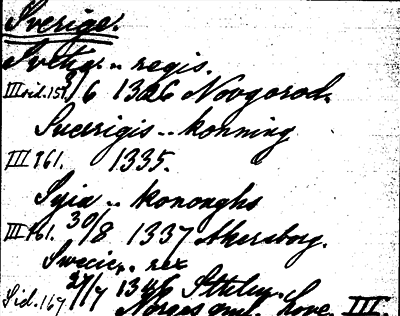 Sverige.
regis.
III sid. 159. 3/6 1326 Novgorod.
Sucerigis -- konning
III 161. 1335.
kononghs
III 161. 30/8 1337 Akersborg.
Swecie, rex
Sid. 167 27/7 1346
Norges gml. Love. III.